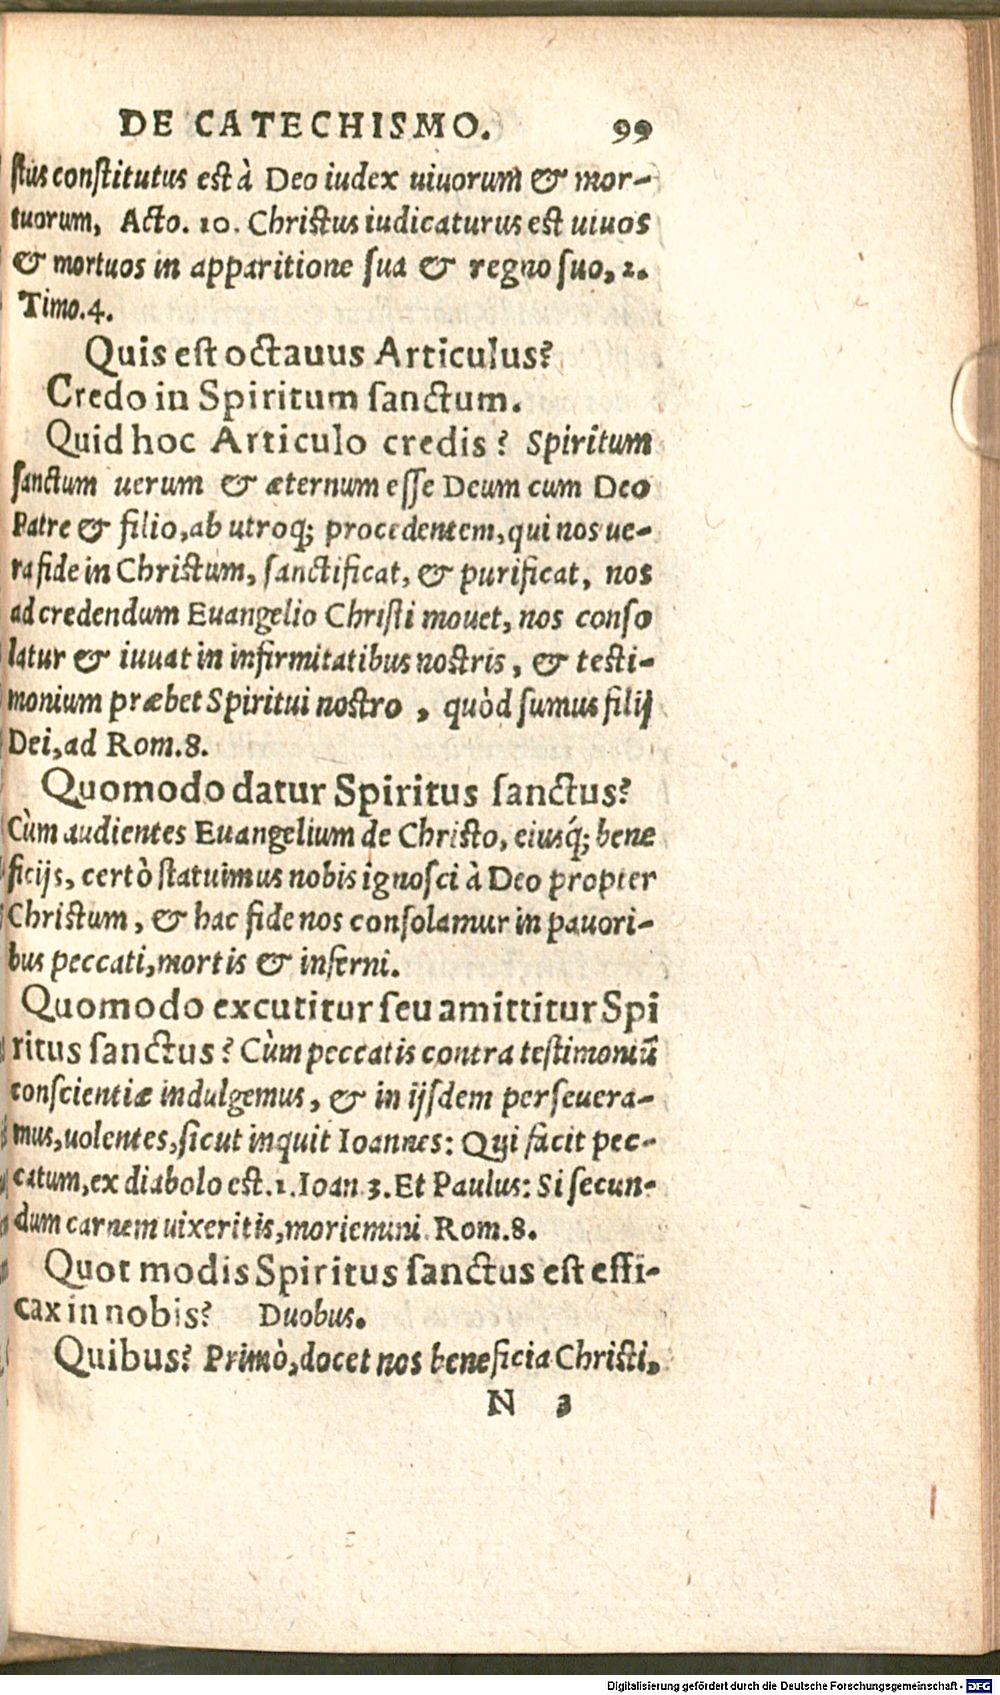 DE CATECHISMO. 99
stus constitutus est à Deo iudex uiuorum & mor-
tuorum, Acto. 10. Christus iudicaturus est uiuos
& mortuos in apparitione sua & regno suo, 2.
Timo.4.
Quis est octauus Articulus?
Credo in Spiritum sanctum.
Quid hoc Articulo credis? Spiritum
sanctum uerum & æternum esse Deum cum Deo
Patre & filio, ab utroq; procedentem, qui nos ue-
ra fide in Christum, sanctificat, & purificat, nos
ad credendum Euangelio Christi mouet, nos conso
latur & iuuat in infirmitatibus nostris, & testi-
monium præbet Spiritui nostro, quòd sumus filij
Dei, ad Rom.8.
Quomodo datur Spiritus sanctus?
Cùm audientes Euangelium de Christo, eiusq́; bene
ficijs, certò statuimus nobis ignosci à Deo propter
Christum, & hac fide nos consolamur in pauori-
bus peccati, mortis & inferni.
Quomodo excutitur seu amittitur Spi
ritus sanctus? Cùm peccatis contra testimoniũ
conscientiæ indulgemus, & in ijsdem perseuera-
mus, uolentes, sicut inquit Ioannes: Qui facit pec-
catum, ex diabolo est. 1. Ioan 3. Et Paulus: Si secun-
dum carnem uixeritis, moriemini. Rom.8.
Quot modis Spiritus sanctus est effi-
cax in nobis? Duobus.
Quibus? Primò, docet nos beneficia Christi,
N 3
Digitalisierung gefördert durch die Deutsche Forschungsgemeinschaft - DFG